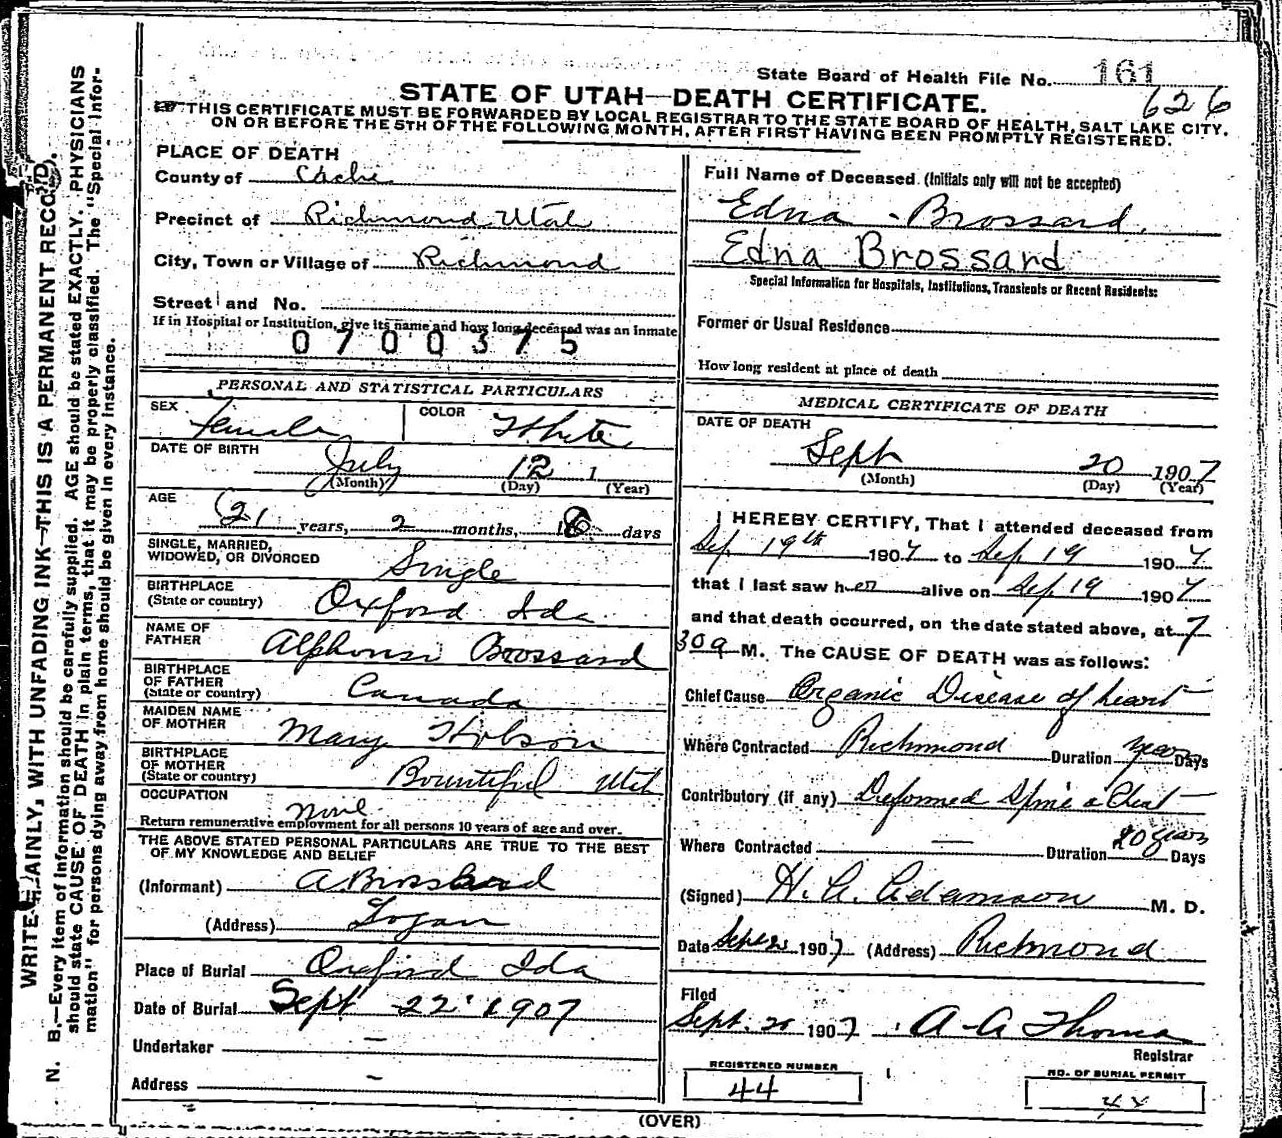 State Board of Health File No. 161
626
STATE OF UTAH—DEATH CERTIFICATE.
THIS CERTIFICATE MUST BE FORWARDED BY LOCAL REGISTRAR TO THE STATE BOARD OF HEALTH, SALT LAKE CITY.
ON OR BEFORE THE 5TH OF THE FOLLOWING MONTH, AFTER FIRST HAVING BEEN PROMPTLY REGISTERED.
PLACE OF DEATH
County of Cache
Precinct of Richmond Utah
City, Town or Village of Richmond
Street and No.
If in Hospital or Institution, give its name and how long deceased was an inmate
0700375
PERSONAL AND STATISTICAL PARTICULARS
SEX Female COLOR White
DATE OF BIRTH July 12 1
(Month) (Day) (Year)
AGE 21 years, 2 months, 18 days
SINGLE, MARRIED,
WIDOWED, OR DIVORCED Single
BIRTHPLACE
(State or country) Oxford Ida
NAME OF
FATHER Alphonsi Brossard
BIRTHPLACE
OF FATHER
(State or country) Canada
MAIDEN NAME
OF MOTHER Mary Hobson
BIRTHPLACE
OF MOTHER
(State or country) Bountiful Utah
OCCUPATION None
Return remunerative employment for all persons 10 years of age and over.
THE ABOVE STATED PERSONAL PARTICULARS ARE TRUE TO THE BEST
OF MY KNOWLEDGE AND BELIEF
(Informant) A Brossard
(Address) Logan
Place of Burial Oxford Ida
Date of Burial Sept 22 1907
Undertaker —
Address —
Full Name of Deceased. (Initials only will not be accepted)
Edna Brossard.
Edna Brossard
Special Information for Hospitals, Institutions, Transients or Recent Residents:
Former or Usual Residence
How long resident at place of death
MEDICAL CERTIFICATE OF DEATH
DATE OF DEATH
Sept 20 1907
(Month) (Day) (Year)
I HEREBY CERTIFY, That I attended deceased from
Sep 19th 1907 to Sep 19 1907
that I last saw her alive on Sep 19 1907
and that death occurred, on the date stated above, at 7
30 a M. The CAUSE OF DEATH was as follows:
Chief Cause Organic Disease of heart
Where Contracted Richmond Duration years Days
Contributory (if any) Deformed Spine & Chest
Where Contracted — Duration 20 years Days
(Signed) H. A. Adamson M. D.
Date Sept 1907 (Address) Richmond
Filed
Sept. 20 1907 A A Thomas
Registrar
REGISTERED NUMBER
44
NO. OF BURIAL PERMIT
44
(OVER)
WRITE PLAINLY, WITH UNFADING INK—THIS IS A PERMANENT RECORD.
N. B.—Every item of information should be carefully supplied. AGE should be stated EXACTLY. PHYSICIANS
should state CAUSE OF DEATH in plain terms, that it may be properly classified. The "Special Infor-
mation" for persons dying away from home should be given in every instance.